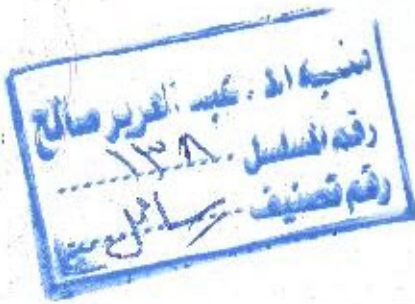 عبد العزيز صالح
رقم المسلسل ١٣٨
رقم تصنيف رسائل